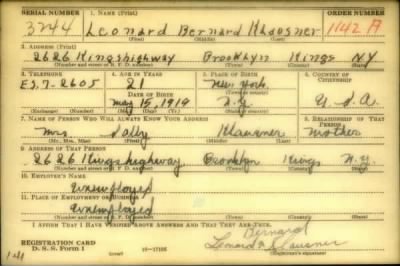 SERIAL NUMBER 1. NAME (Print) ORDER NUMBER
3244 Leonard Bernard Klausner 1142 A
(First) (Middle) (Last)
2. ADDRESS (Print)
2626 Kings highway Brooklyn Kings NY
(Number and street or R. F. D. number) (Town) (County) (State)
3. TELEPHONE 4. AGE IN YEARS 5. PLACE OF BIRTH 6. COUNTRY OF CITIZENSHIP
ES. 7-2605 21 New York
DATE OF BIRTH (Town or county)
May 15, 1919 N.Y. U.S.A.
(Exchange) (Number) (Mo.) (Day) (Yr.) (State or country)
7. NAME OF PERSON WHO WILL ALWAYS KNOW YOUR ADDRESS 8. RELATIONSHIP OF THAT PERSON
Mrs Sally Klausner mother
(Mr., Mrs., Miss) (First) (Middle) (Last)
9. ADDRESS OF THAT PERSON
2626 Kings highway Brooklyn Kings N.Y.
(Number and street or R. F. D. number) (Town) (County) (State)
10. EMPLOYER'S NAME
Unemployed
11. PLACE OF EMPLOYMENT OR BUSINESS
Unemployed
(Number and street or R. F. D. number) (Town) (County) (State)
I AFFIRM THAT I HAVE VERIFIED ABOVE ANSWERS AND THAT THEY ARE TRUE.
Bernard
REGISTRATION CARD Leonard Klausner
D. S. S. Form 1 (over) 16-17105 (Registrant's signature)